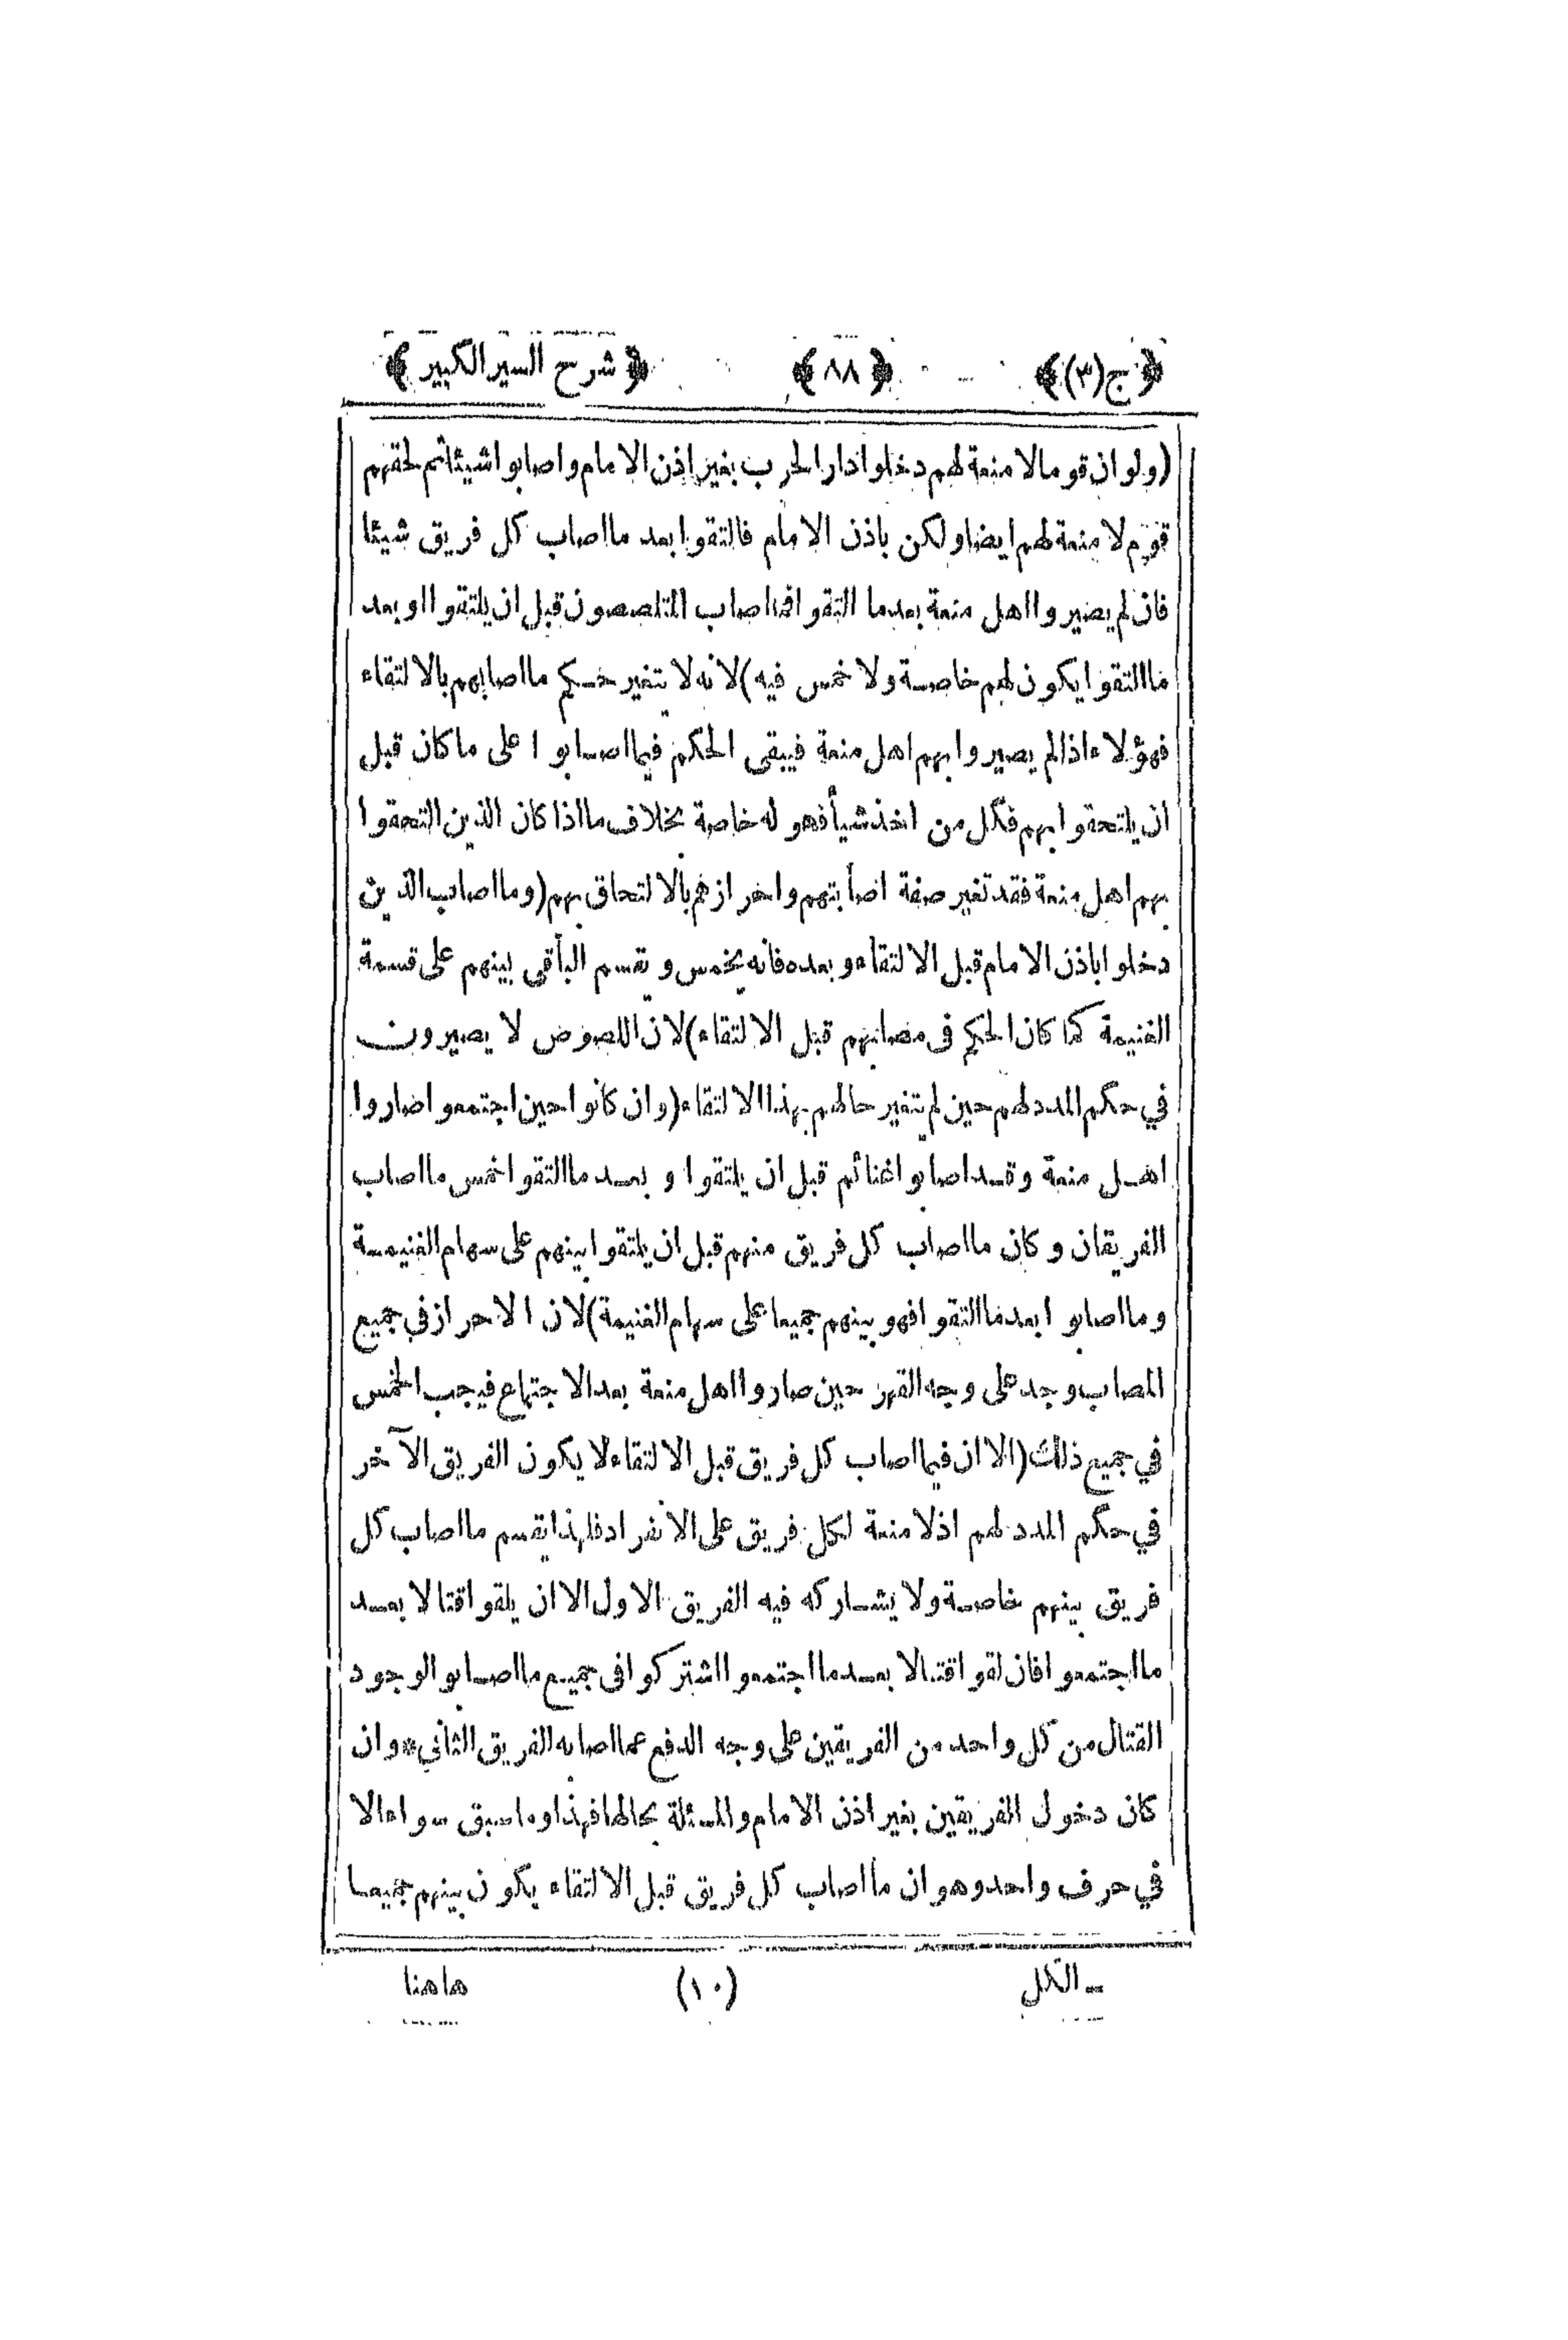 ﴿ ج(٣) ﴾ ﴿ ٨٨ ﴾ ﴿ شرح السير الكبير ﴾
(ولو ان قوما لا منعة لهم دخلوا دار الحرب بغير اذن الامام واصابوا شيئا ثم لحقهم
قوم لا منعة لهم ايضا ولكن باذن الامام فالتقوا بعد ما اصاب كل فريق شيئا
فان لم يصيروا اهل منعة بعدما التقوا فما اصاب المتلصصون قبل ان يلتقوا او بعد
ما التقوا يكون لهم خاصة ولا خمس فيه) لانه لا يتغير حكم ما اصابهم بالالتقاء
فهؤلاء اذا لم يصيروا بهم اهل منعة فيبقى الحكم فيما اصابوا على ما كان قبل
ان يلتحقوا بهم فكل من اخذ شيأ فهو له خاصة بخلاف ما اذا كان الذين التحقوا
بهم اهل منعة فقد تغير صفة اصابتهم واحرازهم بالالتحاق بهم (وما اصاب الذين
دخلوا باذن الامام قبل الالتقاء وبعده فانه يخمس ويقسم الباقى بينهم على قسمة
الغنيمة كما كان الحكم فى مصابهم قبل الالتقاء) لان اللصوص لا يصيرون
في حكم المدد لهم حين لم يتغير حالهم بهذا الالتقاء (وان كانوا حين اجتمعوا صاروا
اهل منعة وقد اصابوا غنائم قبل ان يلتقوا و بعد ما التقوا خمس ما اصاب
الفريقان و كان ما اصاب كل فريق منهم قبل ان يلتقوا بينهم على سهام الغنيمة
وما اصابوا بعد ما التقوا فهو بينهم جميعا على سهام الغنيمة) لان الاحراز في جميع
المصاب وجد على وجه القهر حين صاروا اهل منعة بعد الاجتماع فيجب الخمس
في جميع ذلك (الا ان فيما اصاب كل فريق قبل الالتقاء لا يكون الفريق الآخر
في حكم المدد لهم اذ لا منعة لكل فريق على الانفراد فلهذا يقسم ما اصاب كل
فريق بينهم خاصة ولا يشاركه فيه الفريق الاول الا ان يلقوا قتالا بعد
ما اجتمعوا فان لقوا قتالا بعد ما اجتمعوا اشتركوا فى جميع ما اصابوا لوجود
القتال من كل واحد من الفريقين على وجه الدفع عما اصابه الفريق الثاني * وان
كان دخول الفريقين بغير اذن الامام والمسئلة بحالها فهذا وما سبق سواء الا
في حرف واحد وهو ان ما اصاب كل فريق قبل الالتقاء يكون بينهم جميعا
ـ الكل (١٠) هاهنا